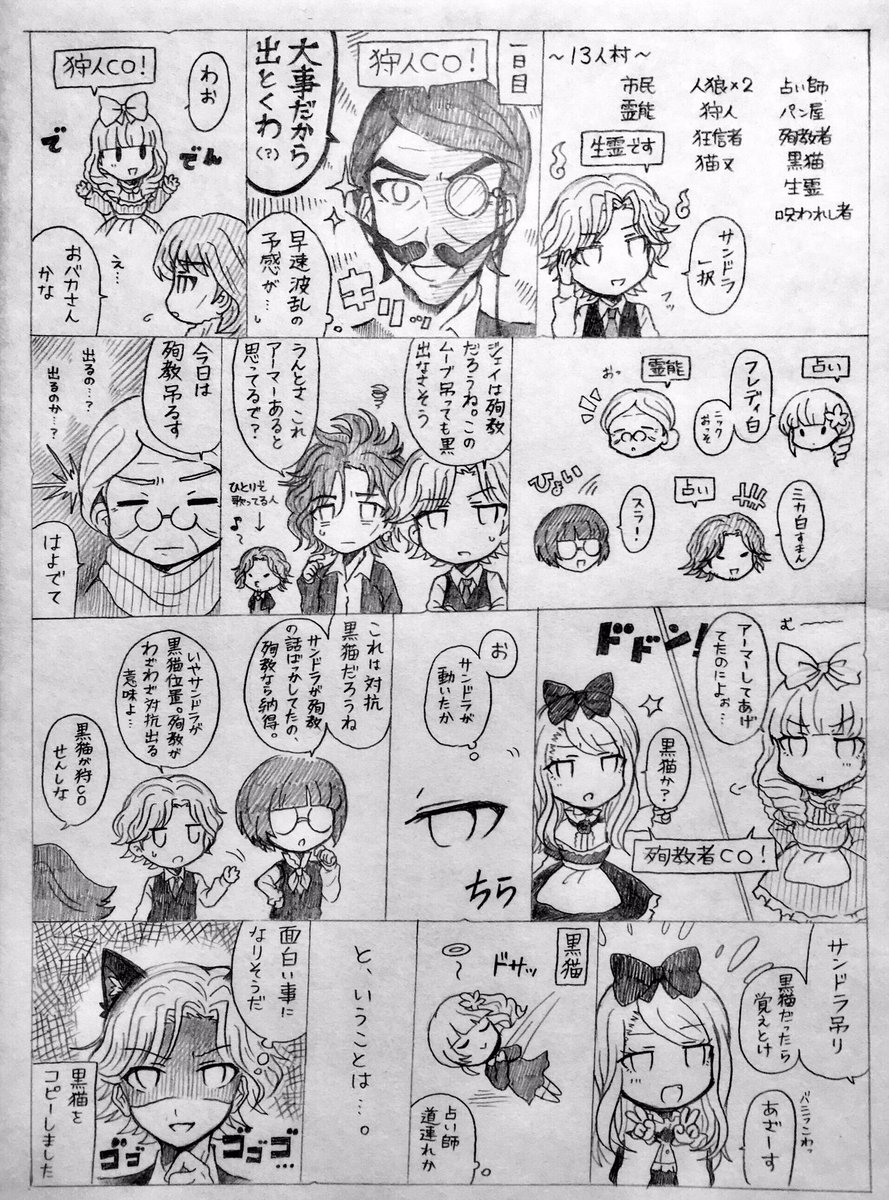 ～13人村～
占い師
パン屋
殉教者
黒猫
生霊
呪われし者
人狼×2
狩人
狂信者
猫又
市民
霊能
生霊です
サンドラ
一択
フッ
一日目
狩人CO！
大事だから
出とくわ
(？)
早速波乱の
予感が…
キリッ
狩人CO！
わお
でん
で
え…
おバカさん
かな
占い
フレディ白
ニック
おっそ
霊能
おっ
ミカ白すまん
占い
スラー！
ひょい
ジェイは殉教
だろうね。この
ムーブ吊っても黒
出なさそう
うんとさ これ
アーマーあると
思ってるで？
ひとりで
歌ってる人
↓
♪
今日は
殉教吊るす
出るの…？
出るのか…？
はよでて
む
アーマーしてあげ
てたのによぉ…
ドドン！
黒猫か？
殉教者CO！
お
サンドラが
動いたか
ちら
これは対抗
黒猫だろうね
サンドラが殉教
の話ばっかしてたの、
殉教なら納得。
いやサンドラが
黒猫位置。殉教が
わざわざ対抗出る
意味よ…
黒猫が狩CO
せんしな
サンドラ吊り
黒猫だったら
覚えとけ
バニラこわっ
あざーす
黒猫
ドサッ
占い師
道連れか
と、いうことは…。
面白い事に
なりそうだ
ゴゴゴゴゴ
黒猫を
コピーしました